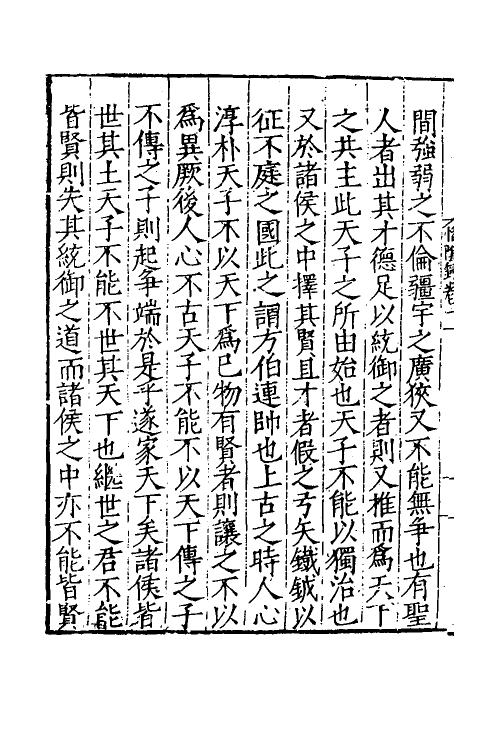 間強弱之不倫疆宇之廣狹又不能無爭也有聖
人者出其才德足以統御之者則又推而爲天下
之共主此天子之所由始也天子不能以獨治也
又於諸侯之中擇其賢且才者假之弓矢鐵鉞以
征不庭之國此之謂方伯連帥也上古之時人心
淳朴天子不以天下爲己物有賢者則讓之不以
爲異厥後人心不古天子不能不以天下傳之子
不傳之子則起爭端於是乎遂家天下矣諸侯皆
世其土天子不能不世其天下也繼世之君不能
皆賢則失其統御之道而諸侯之中亦不能皆賢